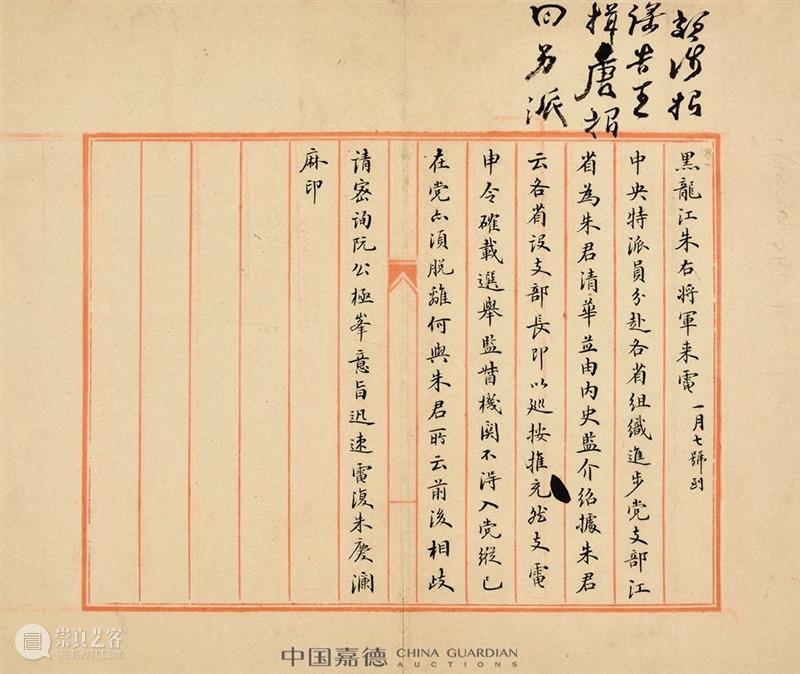 徐告王
揖唐招
回另派
黑龍江朱右將軍来電 一月七號到
中央特派員分赴各省組織進步党支部江
省為朱君清華並由内史監介紹據朱君
云各省設支部長即以巡按推充然支電
申令確載選舉監督機関不得入党縱已
在党亦須脱離何與朱君所云前後相歧
請密詢阮公極峯意旨迅速電復朱慶瀾
麻印
崇真艺客
中国嘉德 CHINA GUARDIAN
AUCTIONS